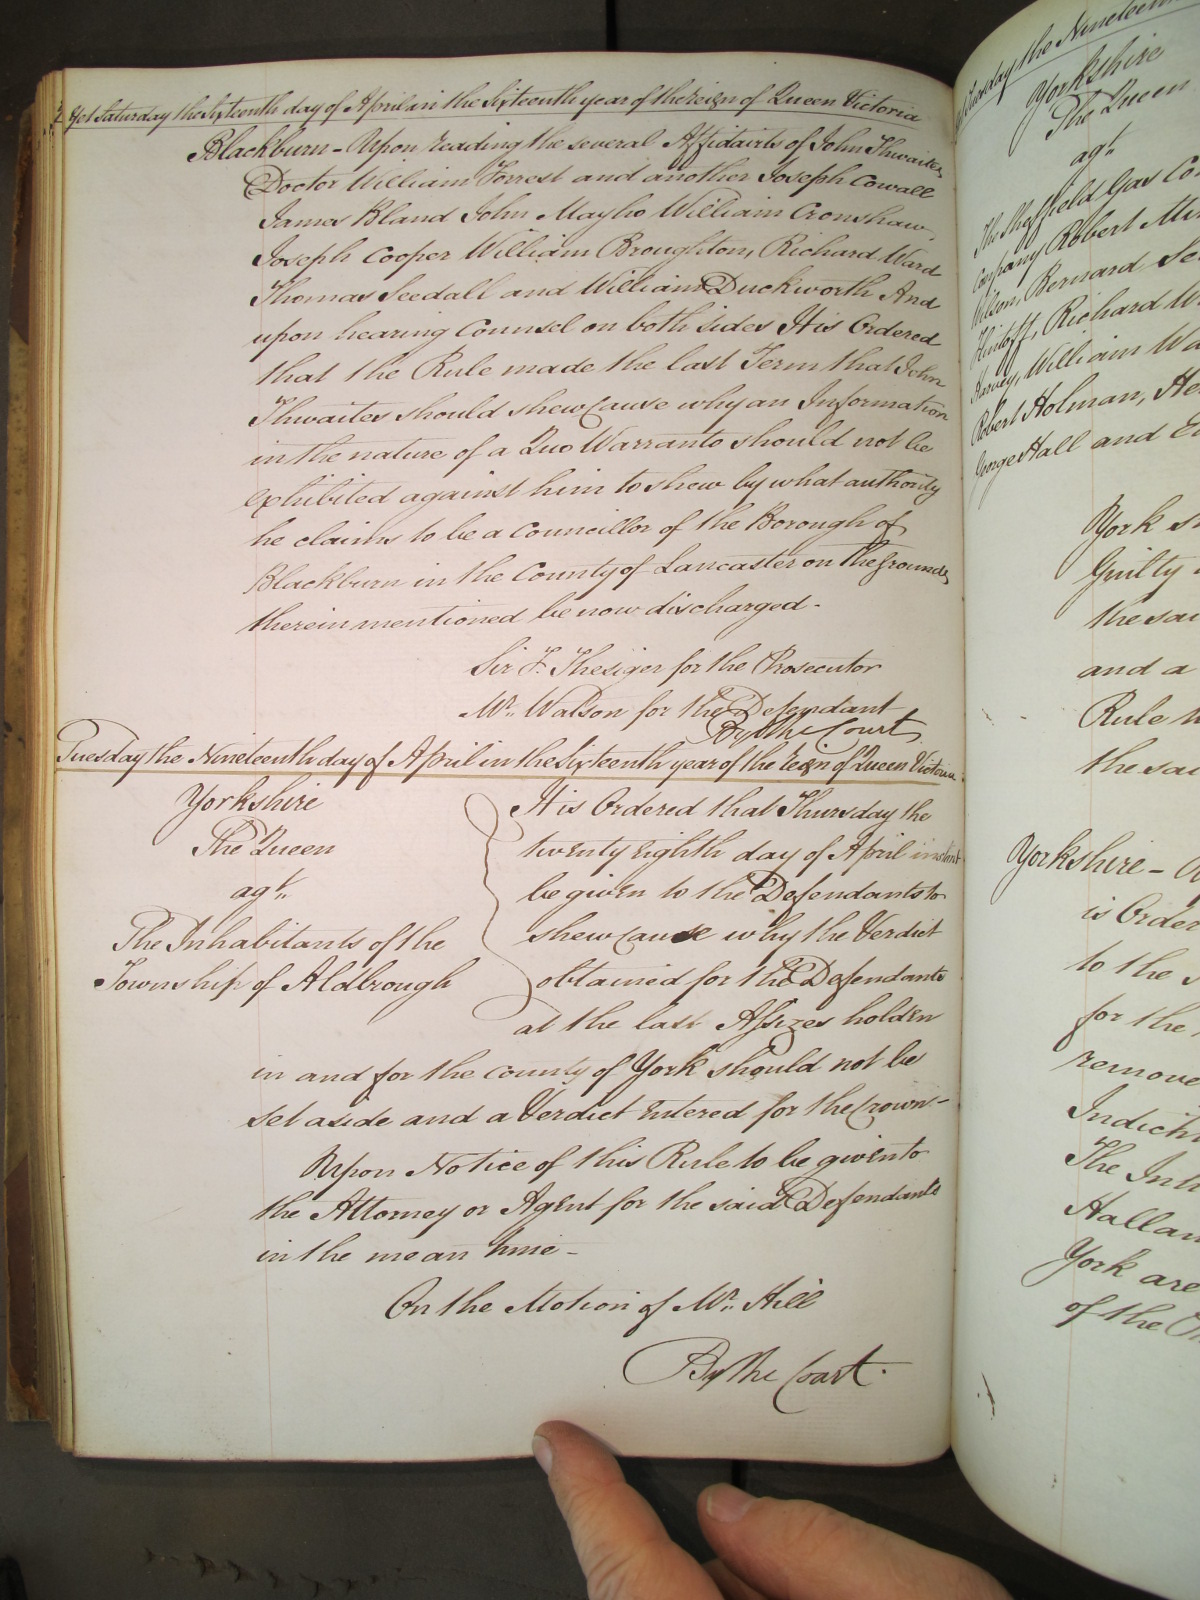 Yet Saturday the Sixteenth day of April in the Sixteenth year of the Reign of Queen Victoria
Blackburn - Upon reading the several Affidavits of John Thwaites,
Doctor William Forrest and another Joseph Cowall
James Bland John Mayho William Cronshaw,
Joseph Cooper William Broughton, Richard Ward
Thomas Seedall and William Duckworth And
upon hearing Counsel on both sides It is Ordered
that the Rule made the last Term that John
Thwaites should shew Cause why an Information
in the nature of a Quo Warranto should not be
exhibited against him to shew by what authority
he claims to be a Councillor of the Borough of
Blackburn in the County of Lancaster on the Grounds
therein mentioned be now discharged -
Sir F. Thesiger for the Prosecutor
Mr. Watson for the Defendant
By the Court
Tuesday the Nineteenth day of April in the Sixteenth year of the Reign of Queen Victoria
Yorkshire
The Queen
agt.
The Inhabitants of the
Township of Aldbrough
It is Ordered that Thursday the
twenty eighth day of April instant
be given to the Defendants to
shew Cause why the Verdict
obtained for the Defendants
at the last Assizes holden
in and for the county of York should not be
set aside and a Verdict entered for the Crown -
Upon Notice of this Rule to be given to
the Attorney or Agent for the said Defendants
in the mean time -
On the Motion of Mr. Hill
By the Court.
Tuesday the Nineteenth
Yorkshire
The Queen
agt.
The Sheffield Gas
Company, Robert
Wilson, Bernard
Richard
Harvey, William
Robert Holman,
George Hall and
York
Guilty
the said
and a
Rule
the said
Yorkshire -
is Ordered
to the
for the
remove
The
Hallam
York are
of the